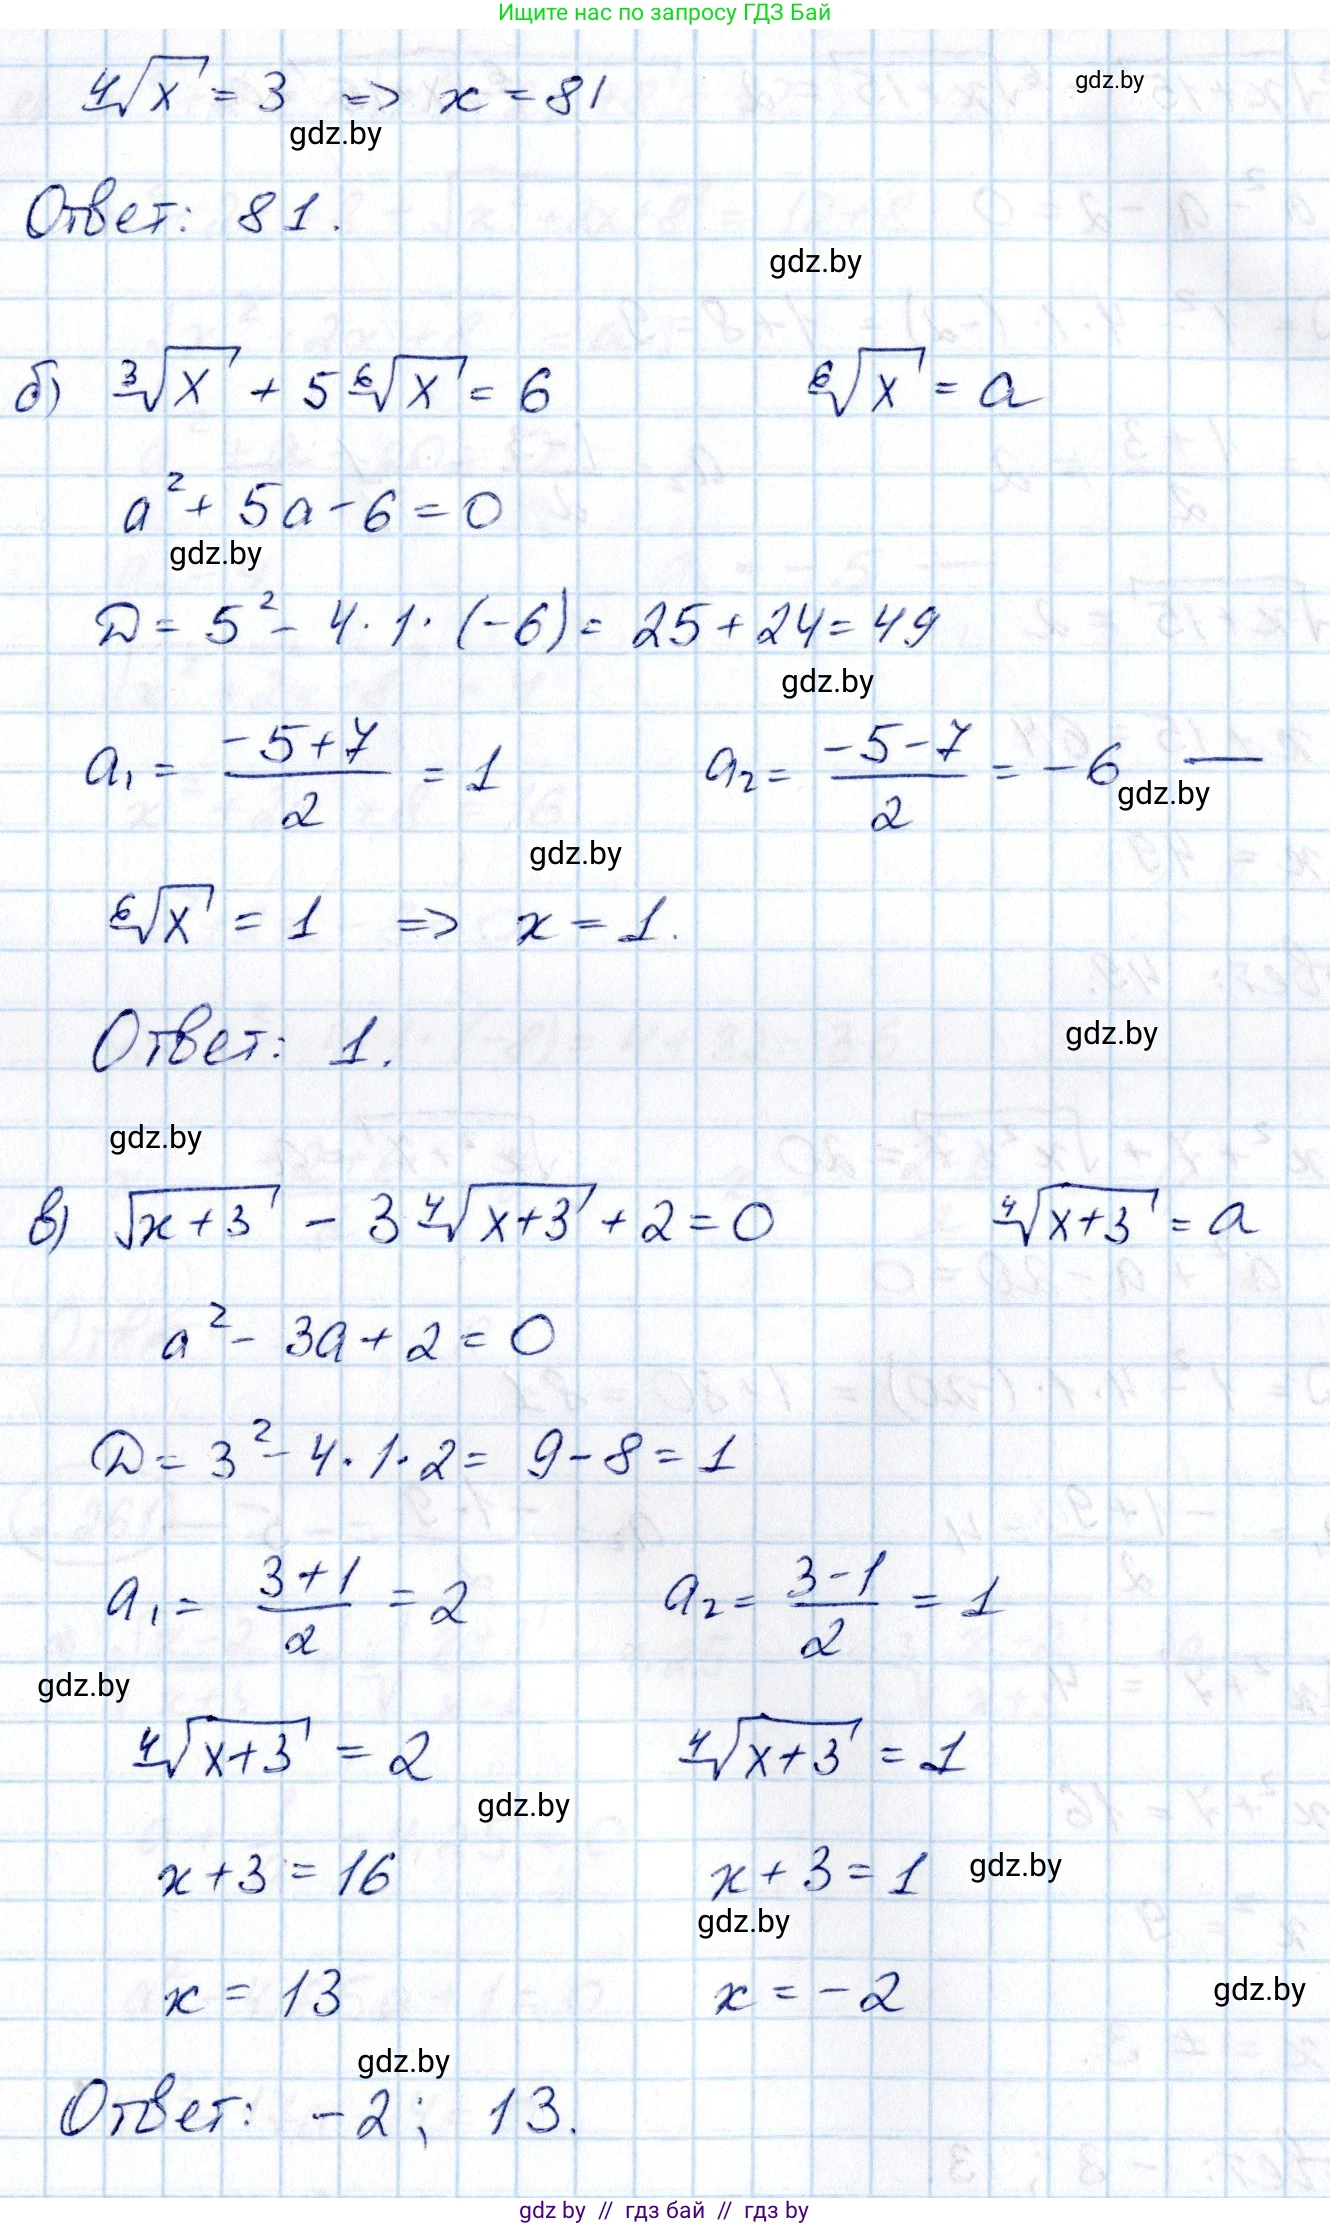 Ищите нас по запросу ГДЗ Бай
⁴√x = 3 => x = 81
gdz.by
gdz.by
Ответ: 81.
gdz.by
б) ³√x + 5 ⁶√x = 6 ⁶√x = a
a² + 5a - 6 = 0
gdz.by
D = 5² - 4 · 1 · (-6) = 25 + 24 = 49
gdz.by
a₁ = (-5+7)/2 = 1 a₂ = (-5-7)/2 = -6 —
gdz.by
gdz.by
⁶√x = 1 => x = 1.
Ответ: 1.
gdz.by
gdz.by
в) √(x+3) - 3 ⁴√(x+3) + 2 = 0 ⁴√(x+3) = a
a² - 3a + 2 = 0
D = 3² - 4 · 1 · 2 = 9 - 8 = 1
a₁ = (3+1)/2 = 2 a₂ = (3-1)/2 = 1
gdz.by
⁴√(x+3) = 2 ⁴√(x+3) = 1
gdz.by
x + 3 = 16 x + 3 = 1
gdz.by
gdz.by
x = 13 x = -2
gdz.by
gdz.by
Ответ: -2; 13.
gdz by // гдз бай // gdz by